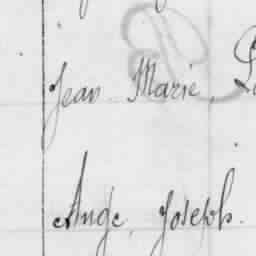 Jean Marie,
Ange, Joseph.